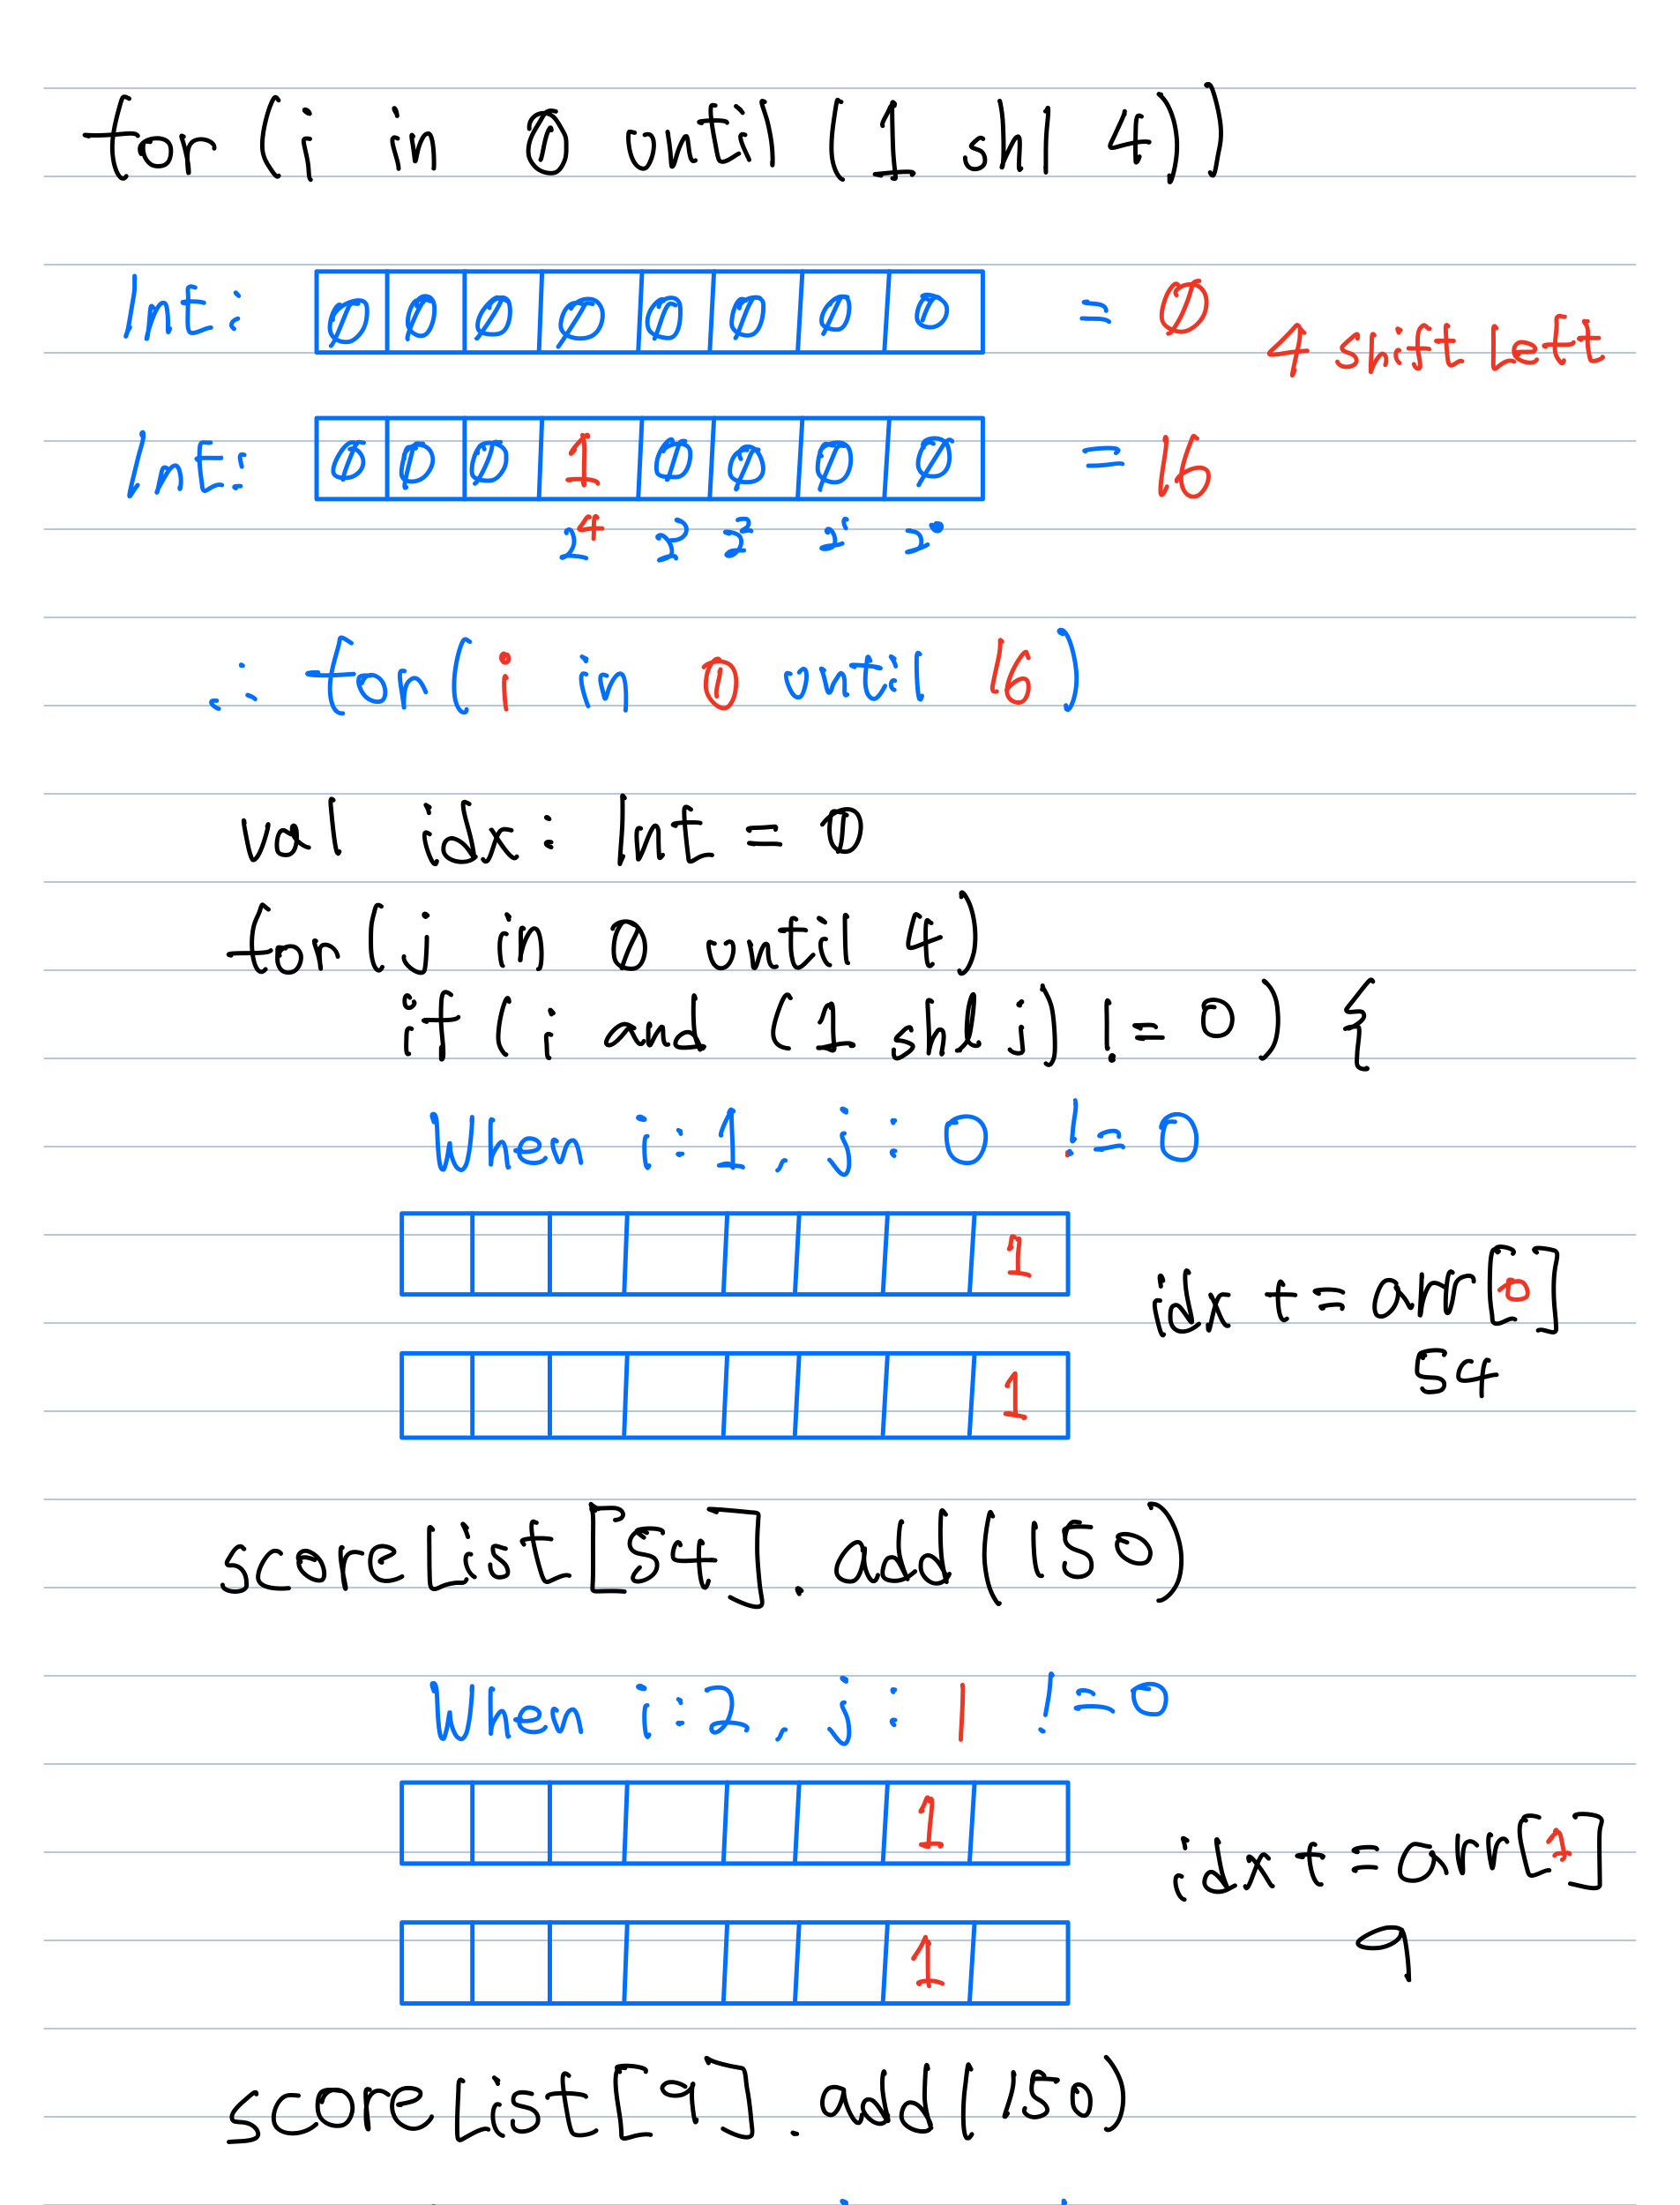 for (i in 0 until (1 shl 4))
Int: 0 0 0 0 0 0 0 0 = 0
4 shift left
Int: 0 0 0 1 0 0 0 0 = 16
2⁴ 2³ 2² 2¹ 2⁰
∴ for (i in 0 until 16)
val idx: Int = 0
for (j in 0 until 4)
if (i and (1 shl j) != 0) {
When i:1, j:0 != 0
1
idx += arr[0]
54
1
scoreList[54].add(150)
When i:2, j:1 != 0
1
idx += arr[1]
9
1
scoreList[9].add(150)